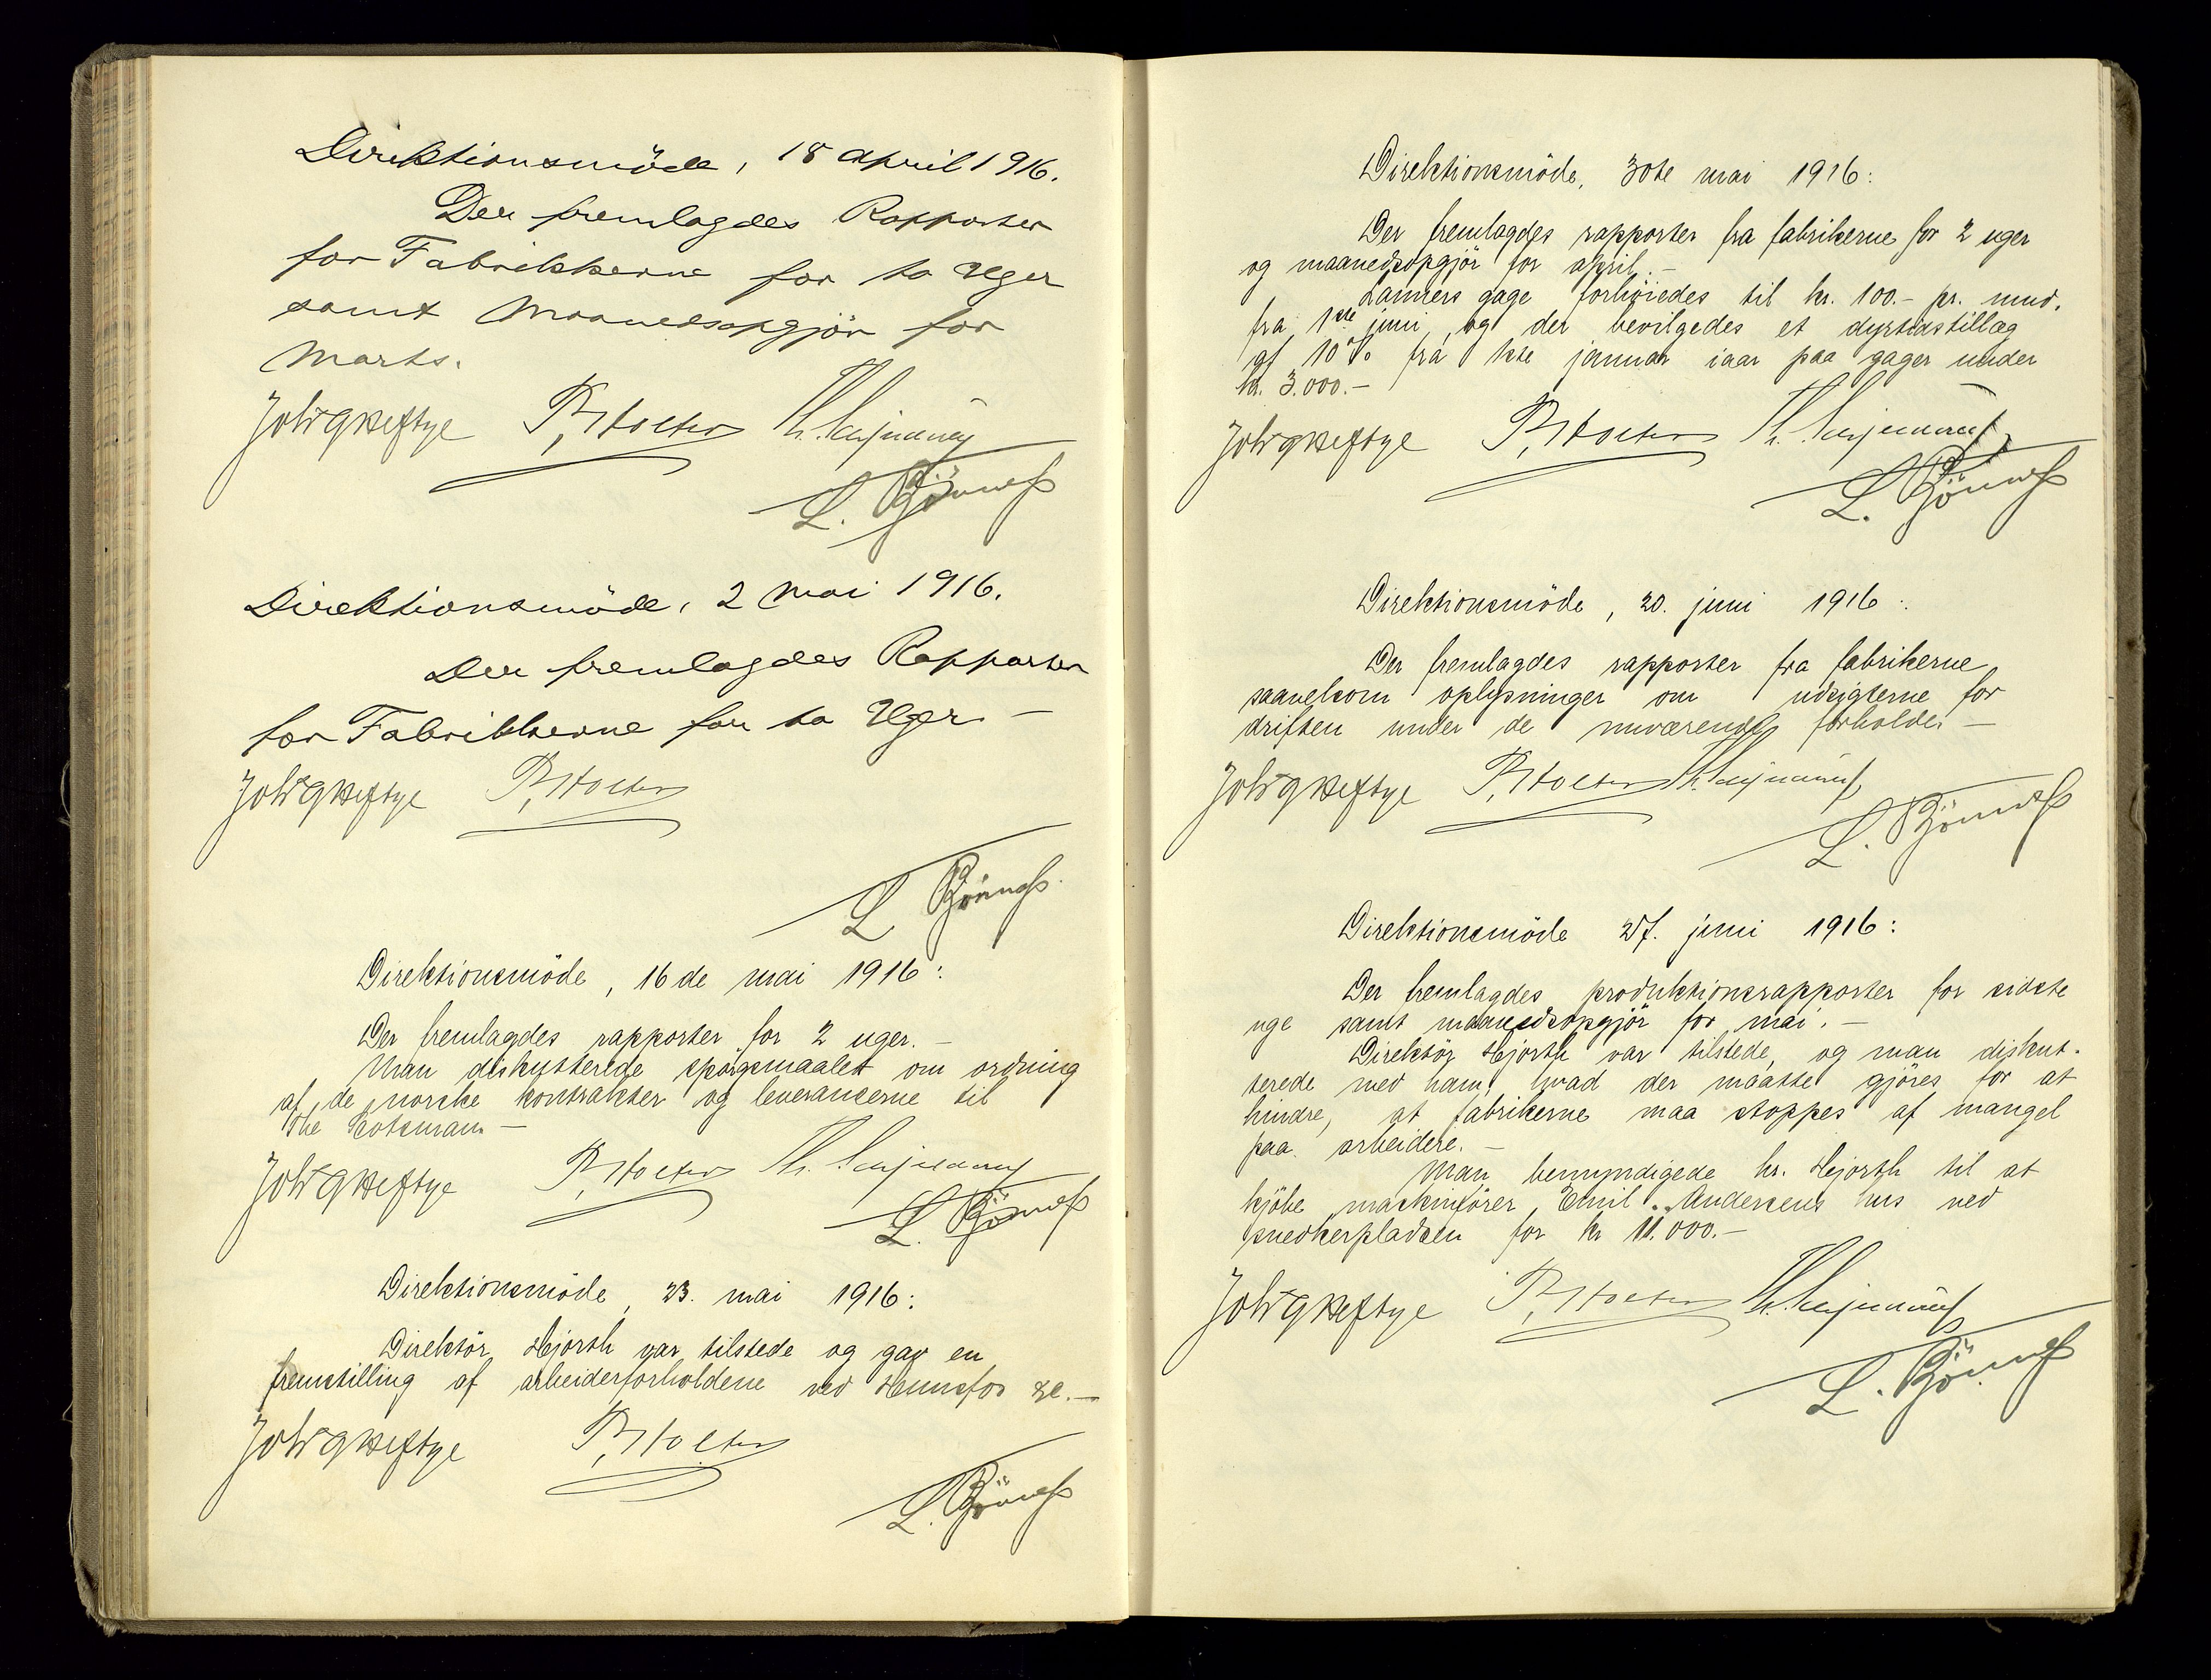 Direktionsmöde, 18 april 1916.
Der fremlagdes Rapporter
for Fabrikkerne for to Uger
samt Maanedsopgjör for
Marts.
Joh. Heftye P. Holter
L. Bönneß
Direktionsmöde, 2 Mai 1916.
Der fremlagdes Rapporter
for Fabrikkerne for to Uger. —
Joh. Heftye P. Holter
L. Bönneß
Direktionsmöde, 16de mai 1916:
Der fremlagdes rapporter for 2 uger. —
Man diskutterede spörgsmaalet om ordning
af de norske kontrakter og leverancerne til
The Scotsman. —
Joh. Heftye P. Holter
L. Bönneß
Direktionsmöde, 23. mai 1916:
Direktör Hjorth var tilstede og gav en
fremstilling af arbeiderforholdene ved Hunsfos
Joh. Heftye P. Holter
L. Bönneß
Direktionsmöde, 30te mai 1916:
Der fremlagdes rapporter fra fabrikerne for 2 uger
og maanedsopgjör for april. —
gage forhöiedes til kr. 100.- pr. mnd.
fra 1ste juni, og der bevilgedes et dyrtidstillæg
af 10% fra 1ste januar iaar paa gager under
kr. 3.000.—
Joh. Heftye P. Holter
L. Bönneß
Direktionsmöde, 20. juni 1916:
Der fremlagdes rapporter fra fabrikerne
saavelsom oplysninger om udsigterne for
driften under de nuværende forholde. —
Joh. Heftye P. Holter
L. Bönneß
Direktionsmöde 27. juni 1916:
Der fremlagdes produktionsrapporter for sidste
uge samt maanedsopgjör for mai. —
Direktör Hjorth var tilstede, og man diskut-
terede med ham, hvad der maatte gjöres for at
hindre, at fabrikerne maa stoppes af mangel
paa arbeidere. —
Man bemyndigede hr. Hjorth til at
kjöbe maskinförer Emil Andersens hus ved
snedkerpladsen for kr 11.000.—
Joh. Heftye P. Holter
L. Bönneß